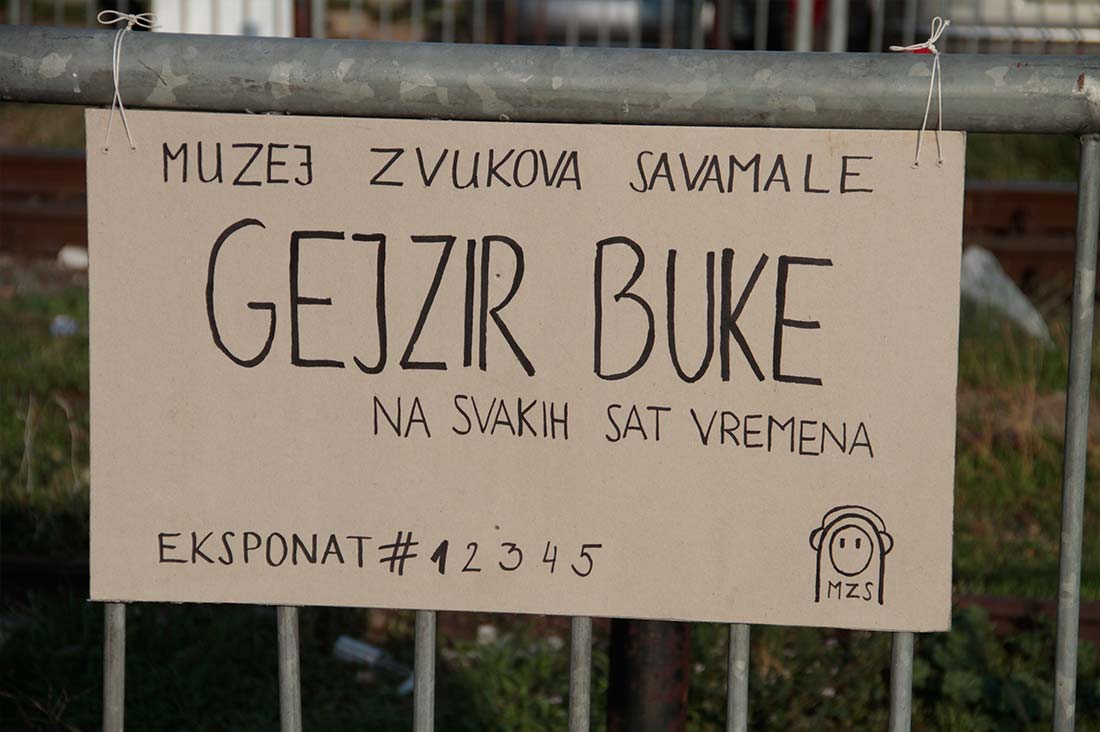 MUZEJ ZVUKOVA SAVAMALE
GEJZIR BUKE
NA SVAKIH SAT VREMENA
EKSPONAT #12345
MZS